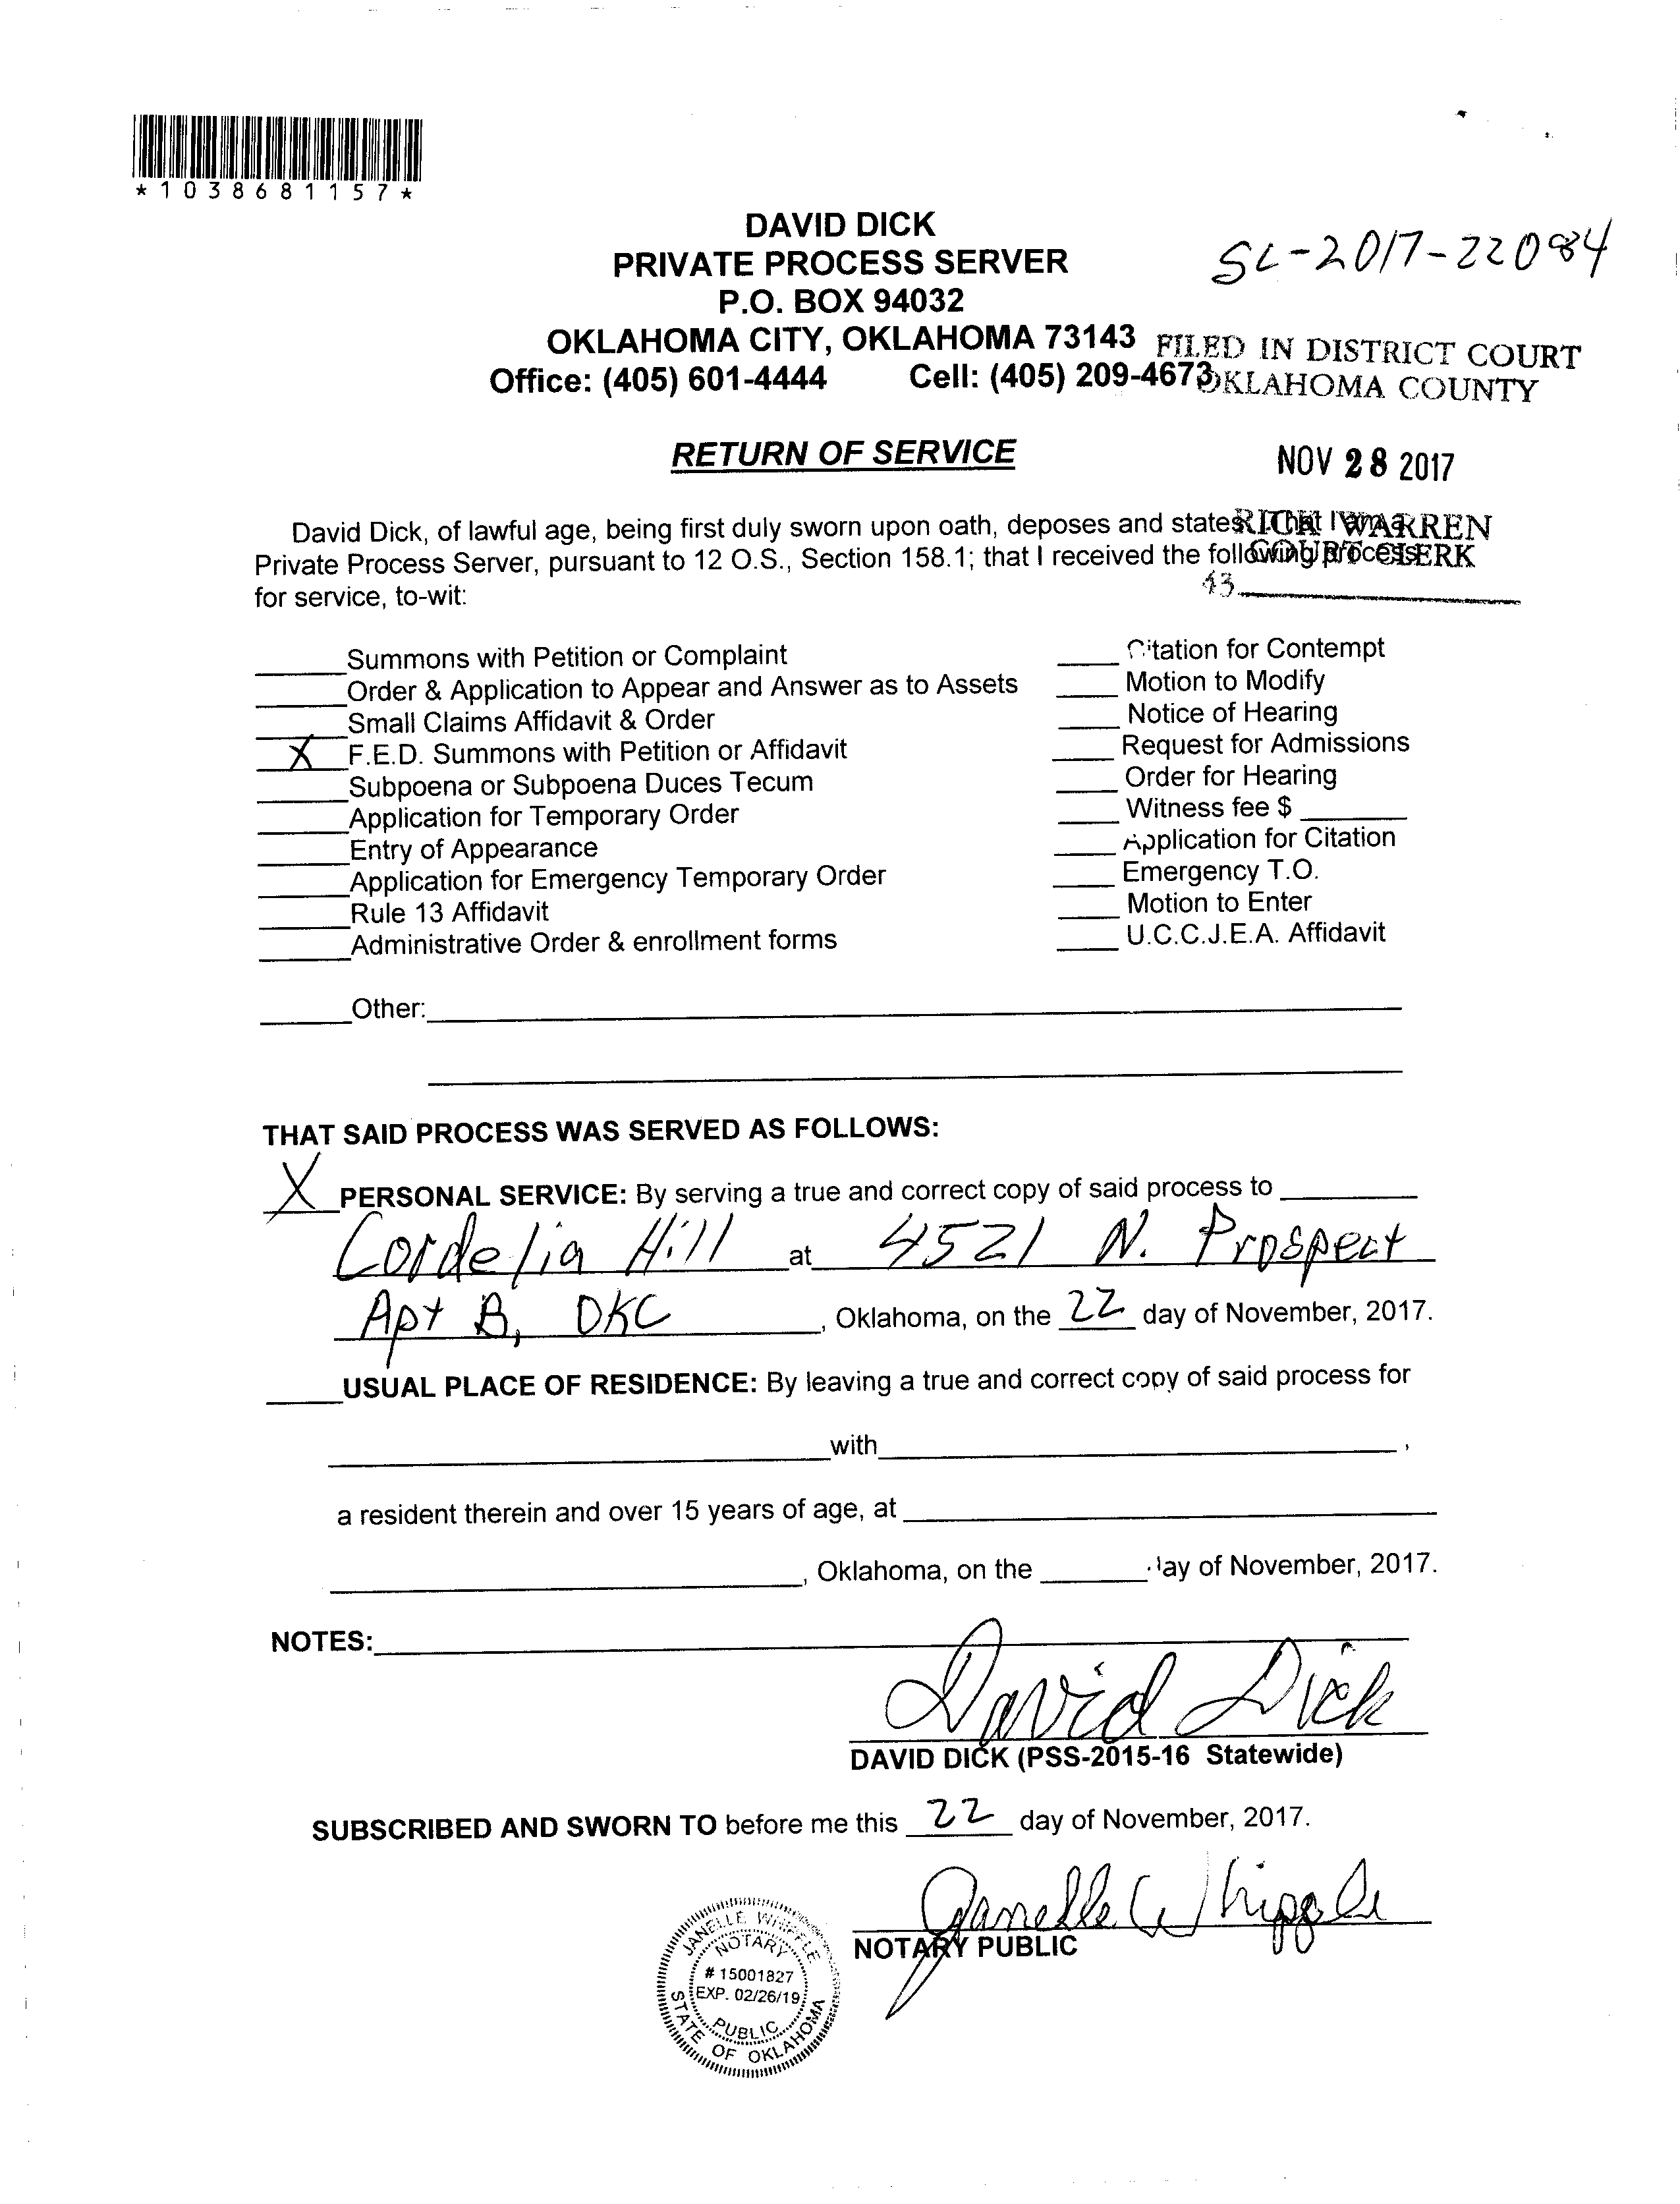 *1038681157*
DAVID DICK
PRIVATE PROCESS SERVER
P.O. BOX 94032
OKLAHOMA CITY, OKLAHOMA 73143
Office: (405) 601-4444 Cell: (405) 209-4673
SC-2017-22084
FILED IN DISTRICT COURT
OKLAHOMA COUNTY
RETURN OF SERVICE
NOV 28 2017
RICK WARREN
COURT CLERK
43
David Dick, of lawful age, being first duly sworn upon oath, deposes and states: That I am a
Private Process Server, pursuant to 12 O.S., Section 158.1; that I received the following process
for service, to-wit:
Summons with Petition or Complaint
Order & Application to Appear and Answer as to Assets
Small Claims Affidavit & Order
X F.E.D. Summons with Petition or Affidavit
Subpoena or Subpoena Duces Tecum
Application for Temporary Order
Entry of Appearance
Application for Emergency Temporary Order
Rule 13 Affidavit
Administrative Order & enrollment forms
Citation for Contempt
Motion to Modify
Notice of Hearing
Request for Admissions
Order for Hearing
Witness fee $
Application for Citation
Emergency T.O.
Motion to Enter
U.C.C.J.E.A. Affidavit
Other:
THAT SAID PROCESS WAS SERVED AS FOLLOWS:
X PERSONAL SERVICE: By serving a true and correct copy of said process to
Cordelia Hill at 4521 N. Prospect
Apt B, OKC, Oklahoma, on the 22 day of November, 2017.
USUAL PLACE OF RESIDENCE: By leaving a true and correct copy of said process for
with ,
a resident therein and over 15 years of age, at
, Oklahoma, on the day of November, 2017.
NOTES:
David Dick
DAVID DICK (PSS-2015-16 Statewide)
SUBSCRIBED AND SWORN TO before me this 22 day of November, 2017.
Janelle Whipple
NOTARY PUBLIC
JANELLE WHIPPLE
NOTARY
# 15001827
EXP. 02/26/19
PUBLIC
STATE OF OKLAHOMA